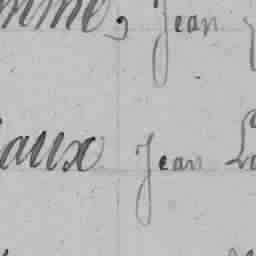 mme, Jean
aux Jean